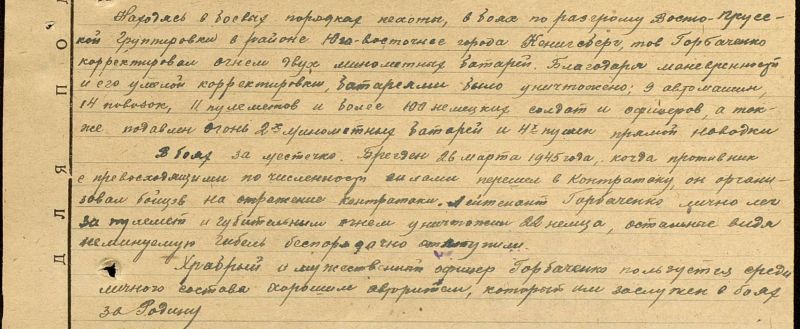 Находясь в боевых порядках пехоты, в боях по разгрому Восто-Прусс-
кой группировки в районе Юго-восточнее города Кенигсберг, тов Горбаченко
корректировал огнем двух минометных батарей. Благодаря маневренности
и его умелой корректировки, батареями было уничтожено: 9 автомашин,
14 повозок, 11 пулеметов и более 100 немецких солдат и офицеров, а так-
же подавлен огонь 2х минометных батарей и 4х пушек прямой наводки
В боях за местечко Бregден 26 марта 1945 года, когда противник
с превосходящими по численности силами перешел в контратаку, он органи-
зовал бойцов на отражение контратаки. Лейтенант Горбаченко лично лег
за пулемет и губительным огнем уничтожил 22 немца, остальные видя
неминуемую гибель беспорядочно отступили.
Храбрый и мужественный офицер Горбаченко пользуется среди
личного состава хорошим авторитетом, который им заслужен в боях
за Родину
ДЛЯ ПОД